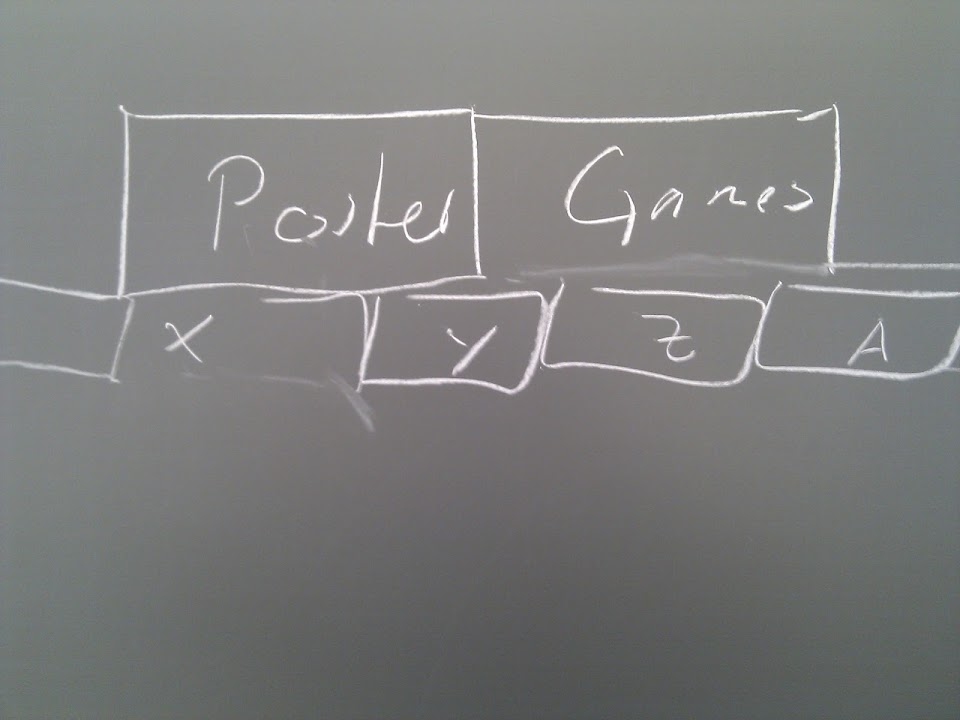 Poster Games
X Y Z A